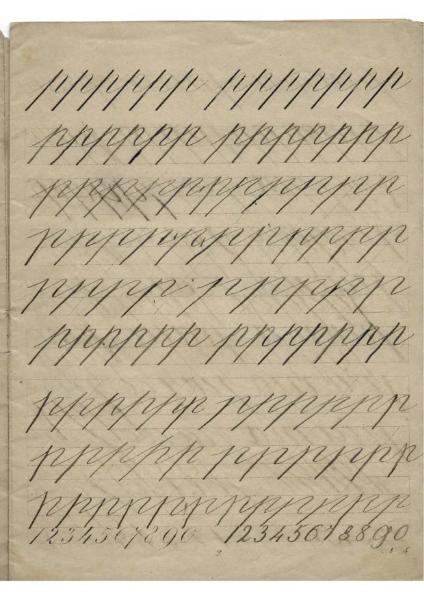 pppppp ppppppp
pppppp ppppppp
ppppppppppppp
ppppppppppppp
ppppp pppppp
pppppp ppppppp
pppppp ppppppp
pppppp ppppppp
ppppppppppppp
1234567890 12345678890